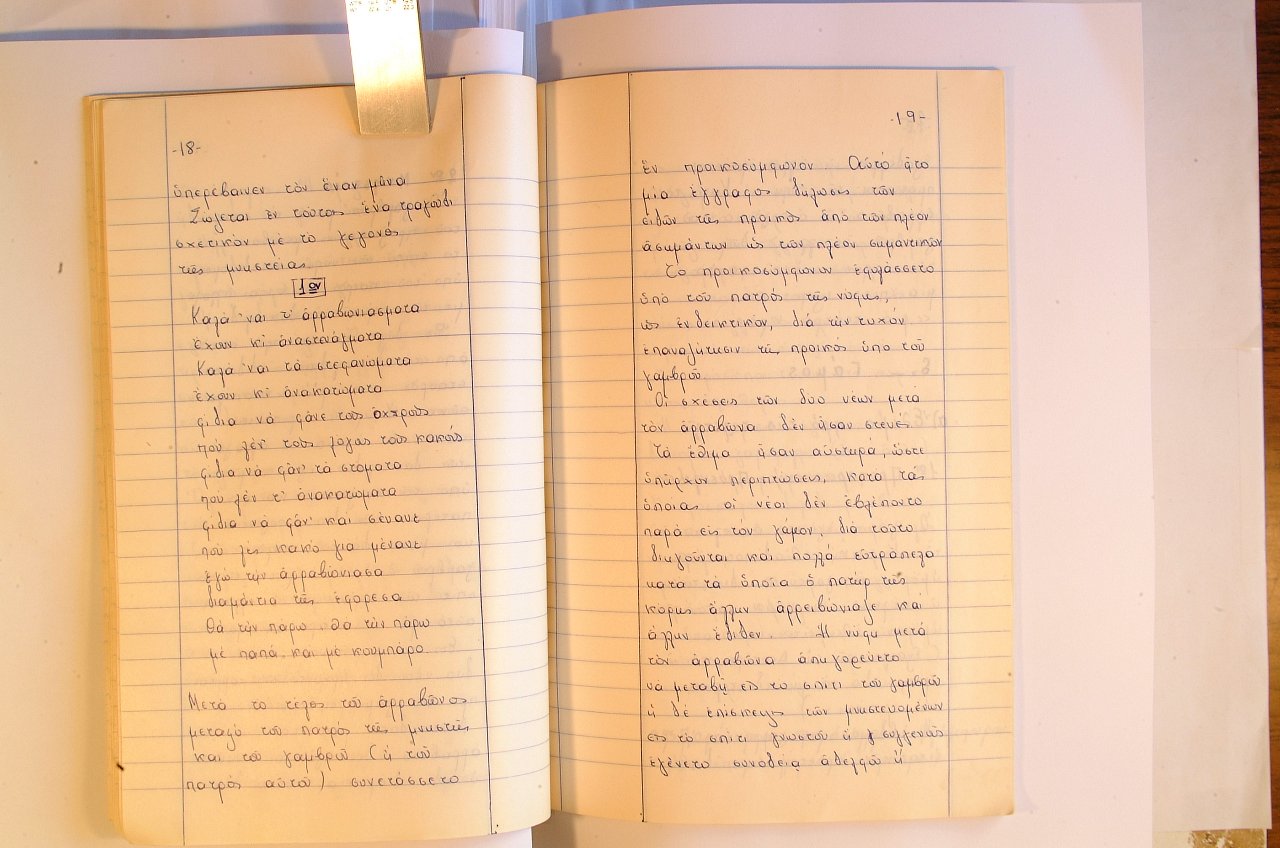 -18-
ὑπερέβαινεν τὸν ἕναν μῆνα
Σώζεται ἐν τούτοις ἕνα τραγούδι
σχετικὸν μὲ τὸ γεγονὸς
τῆς μνηστείας
1ον
Καλά 'ναι τ' ἀρραβωνιάσματα
ἔχουν κι ἀναστενάγματα
Καλά 'ναι τὰ στεφανώματα
ἔχουν κι ἀνακατώματα
φίδια νὰ φάνε τοὺς ὀχτροὺς
ποὺ λέν' τοὺς λόγας τοὺς κακούς
φίδια νὰ φάν' τὰ στόματα
ποὺ λέν τ' ἀνακατώματα
φίδια νὰ φάν' καὶ σένανε
ποὺ λὲς κακὸ γιὰ μένανε
ἐγὼ τὴν ἀρραβώνιασα
διαμάντια τῆς ἐφόρεσα
Θὰ τὴν πάρω. θὰ τὴν πάρω
μὲ παπά. καὶ μὲ κουμπάρο
Μετὰ τὸ τέλος τοῦ ἀρραβῶνος
μεταξὺ τοῦ πατρὸς τῆς μνηστῆς
καὶ τοῦ γαμβροῦ (ἢ τοῦ
πατρὸς αὐτοῦ) συνετάσσετο
-19-
ἓν προικοσύμφωνον Αὐτὸ ἦτο
μία ἔγγραφος δήλωσις τῶν
εἰδῶν τῆς προικὸς ἀπὸ τῶν πλέον
ἀσημάντων ὡς τῶν πλέον σημαντικῶν
Τὸ προικοσύμφωνον ἐφυλάσσετο
ὑπὸ τοῦ πατρός τῆς νύφης,
ὡς ἐνδεικτικόν, διὰ τὴν τυχόν
ἐπαναζήτησιν τῆς προικός ὑπὸ τοῦ
γαμβροῦ.
Οἱ σχέσεις τῶν δύο νέων μετὰ
τὸν ἀρραβῶνα δὲν ἦσαν στενές.
Τὰ ἔθιμα ἦσαν αὐστηρά, ὥστε
ὑπῆρχον περιπτώσεις, κατὰ τὰς
ὁποίας οἱ νέοι δὲν ἐβλέποντο
παρὰ εἰς τὸν γάμον, διὰ τοῦτο
διηγοῦνται καὶ πολλὰ εὐτράπελα
κατὰ τὰ ὁποῖα ὁ πατὴρ τῆς
κόρης ἄλλην ἀρρεβώνιαζε καὶ
ἄλλην ἔδιδεν. Ἡ νύφη μετὰ
τὸν ἀρραβῶνα ἀπηγορεύετο
νὰ μεταβῇ εἰς τὸ σπίτι τοῦ γαμβροῦ
ἡ δὲ ἐπίσκεψις τῶν μνηστευομένων
εἰς τὸ σπίτι γνωστοῦ ἢ συγγενοῦς
ἐγένετο συνοδείᾳ ἀδελφῶ ἢ